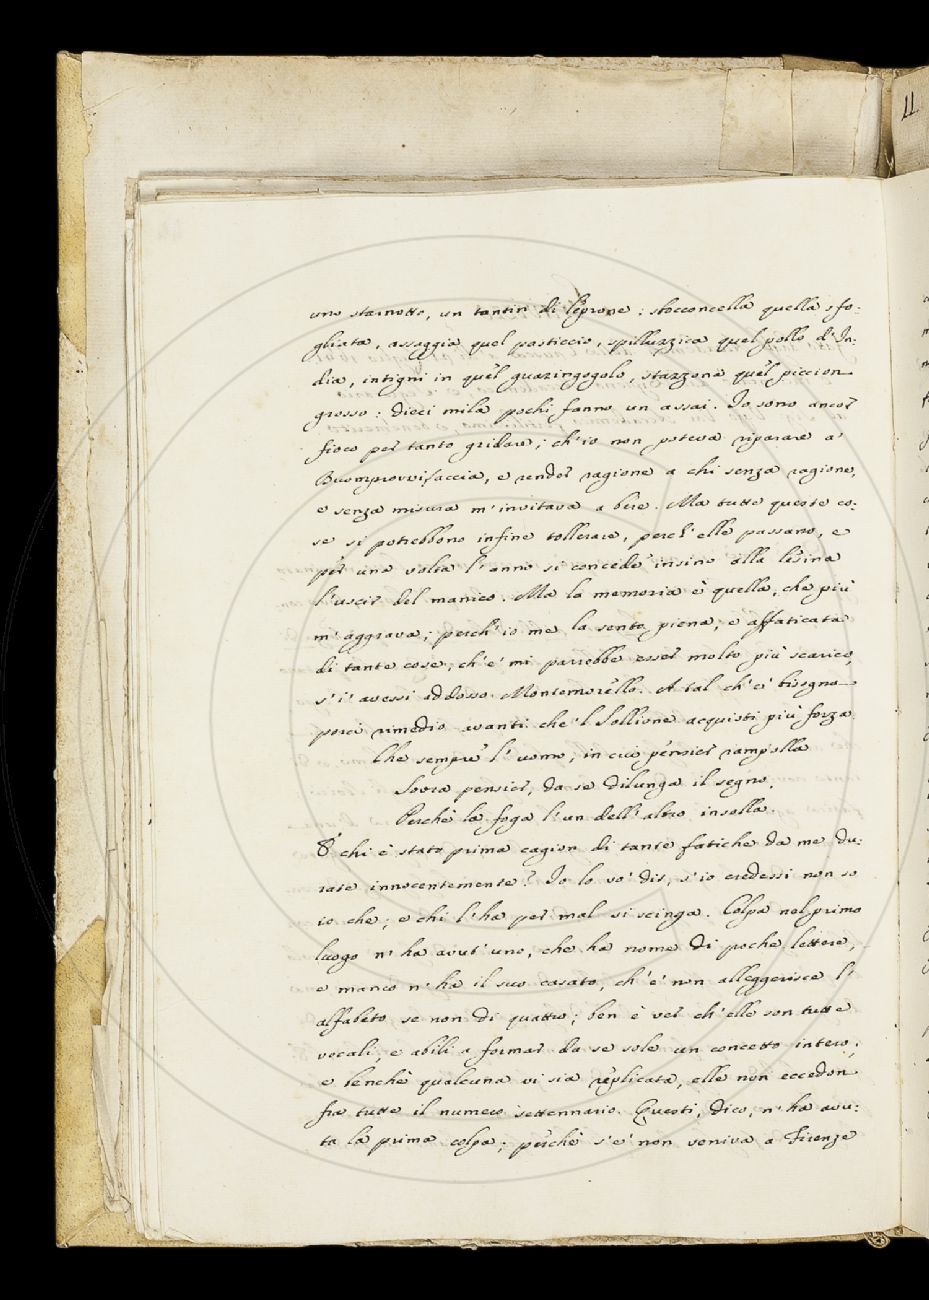 11
uno starnotto, un tantin di leprone: sbocconcella quella sfo:
gliata, assaggia quel pasticcio, spilluzzica quel pollo d'In:
dia, intigni in quel guazingogolo, stazzona quel piccion
grosso: dieci mila pochi fanno un assai. Io sono ancor
fioco per tanto gridare; ch'io non poteva riparare a'
Buomprovvifaccia, e render ragione a chi senza ragione,
e senza misura m'invitava a bere. Ma tutte queste co:
se si potrebbono infine tollerare, perch'elle passano, e
per una volta l'anno si concede insino alla lesina
l'uscir del manico. Ma la memoria è quella, che più
m'aggrava; perch'io me la sento piena, e affaticata
di tante cose, ch'e' mi parrebbe esser molto più scarico,
s'i' avessi addosso Montemorello. A tal ch'ei bisogna
porci rimedio avanti che'l Sollione acquisti più forza
Che sempre l'uomo, in cui pensier rampolla
Sovra pensier, da se dilunga il segno,
Perchè la foga l'un dell'altro insolla.
E chi è stato prima cagion di tante fatiche da me du:
rate innocentemente? Io lo vo' dir, s'io credessi non so
io che; e chi l'ha per mal si scinga. Colpa nel primo
luogo n'ha avut'uno, che ha nome di poche lettere,
e manco n'ha il suo casato, ch'e' non alleggerisce l'
alfabeto se non di quattro; ben è ver ch'elle son tutte
vocali, e abili a formar da se sole un concetto intero;
e benchè qualcuna vi sia replicata, elle non eccedon
fra tutte il numero settennario. Questi, dico, n'ha avu:
ta la prima colpa; perchè s'e' non veniva a Firenze